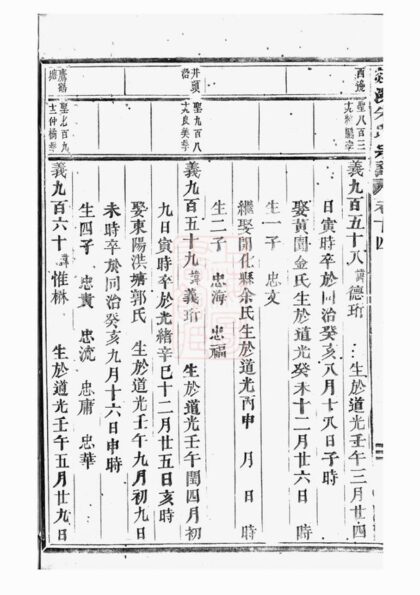 卷十四
西邊
聖八百三
義九百五十八 諱德珩 生於道光壬午三月廿四
日寅時卒於同治癸亥八月十八日子時
娶黃閭金氏生於道光癸未十二月廿六日 時
生一子 忠文
繼娶開化縣余氏生於道光丙申 月 日 時
生二子 忠海 忠福
井頭
聖九百八
義九百五十九 諱義珩 生於道光壬午閏四月初
九日寅時卒於光緒辛巳十二月廿五日亥時
娶東陽洪塘郭氏 生於道光壬午九月初九日
未時卒於同治癸亥九月十六日申時
生四子 忠貴 忠流 忠庸 忠華
義九百六十 諱惟楙 生於道光壬午五月廿九日